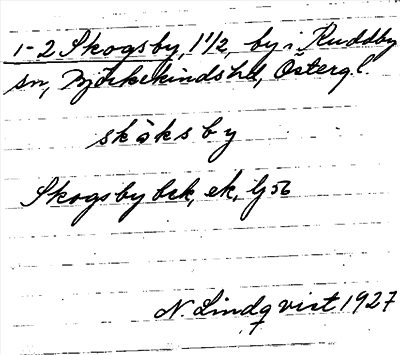 1-2 Skogsby, 1 1/2, by i Ruddby
sn, Björkekinds hd, Östergl.
skòksby
Skogsby bek, ek, lj 56
N. Lindqvist 1927